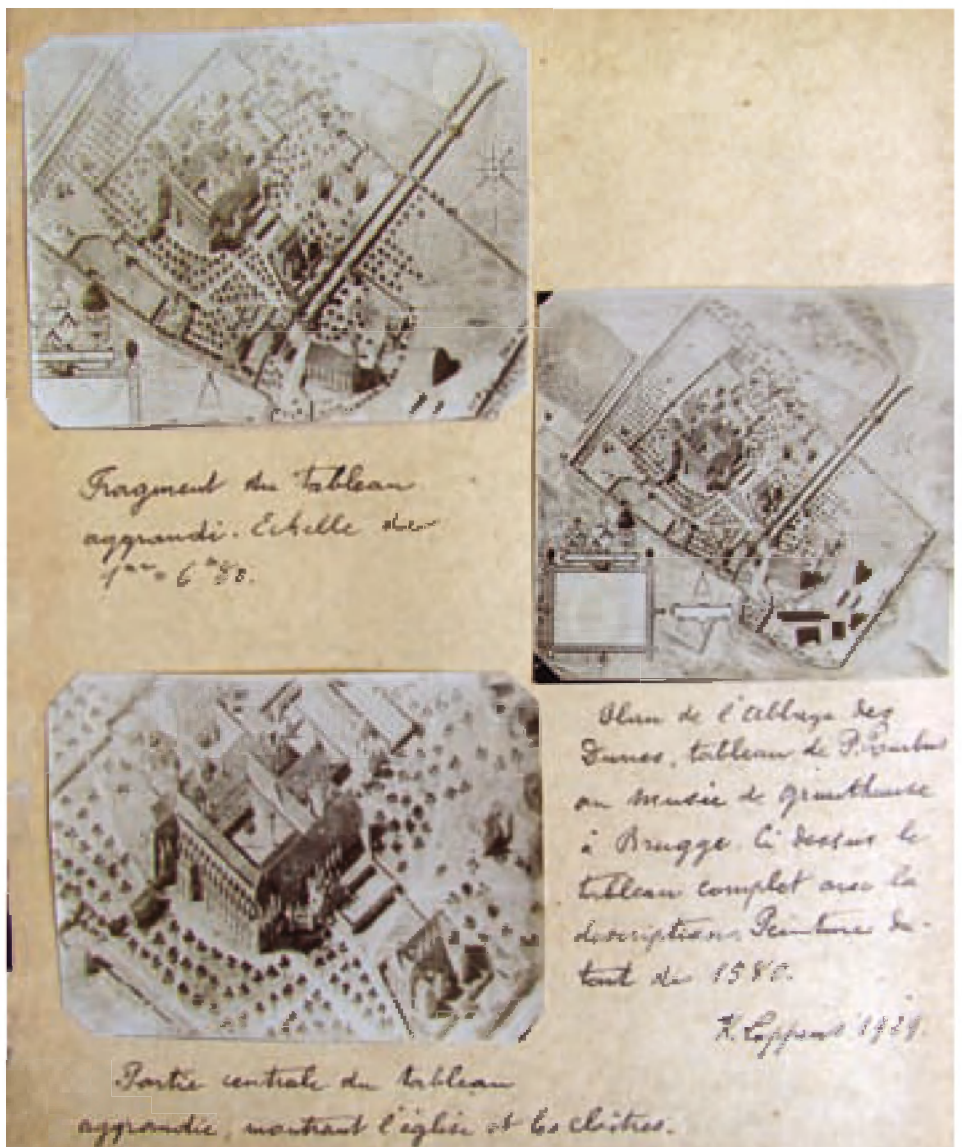 Fragment du tableau
aggrandi. Echelle de
1mm = 6m80.
Plan de l'Abbaye des
Dunes, tableau de P. Pourbus
au musée de gruuthuuse
à Brugge. Ci dessus le
tableau complet avec la
description. Peinture da-
tant de 1580.
K. Loppens 1929.
Partie centrale du tableau
aggrandie, montrant l'église et les cloîtres.